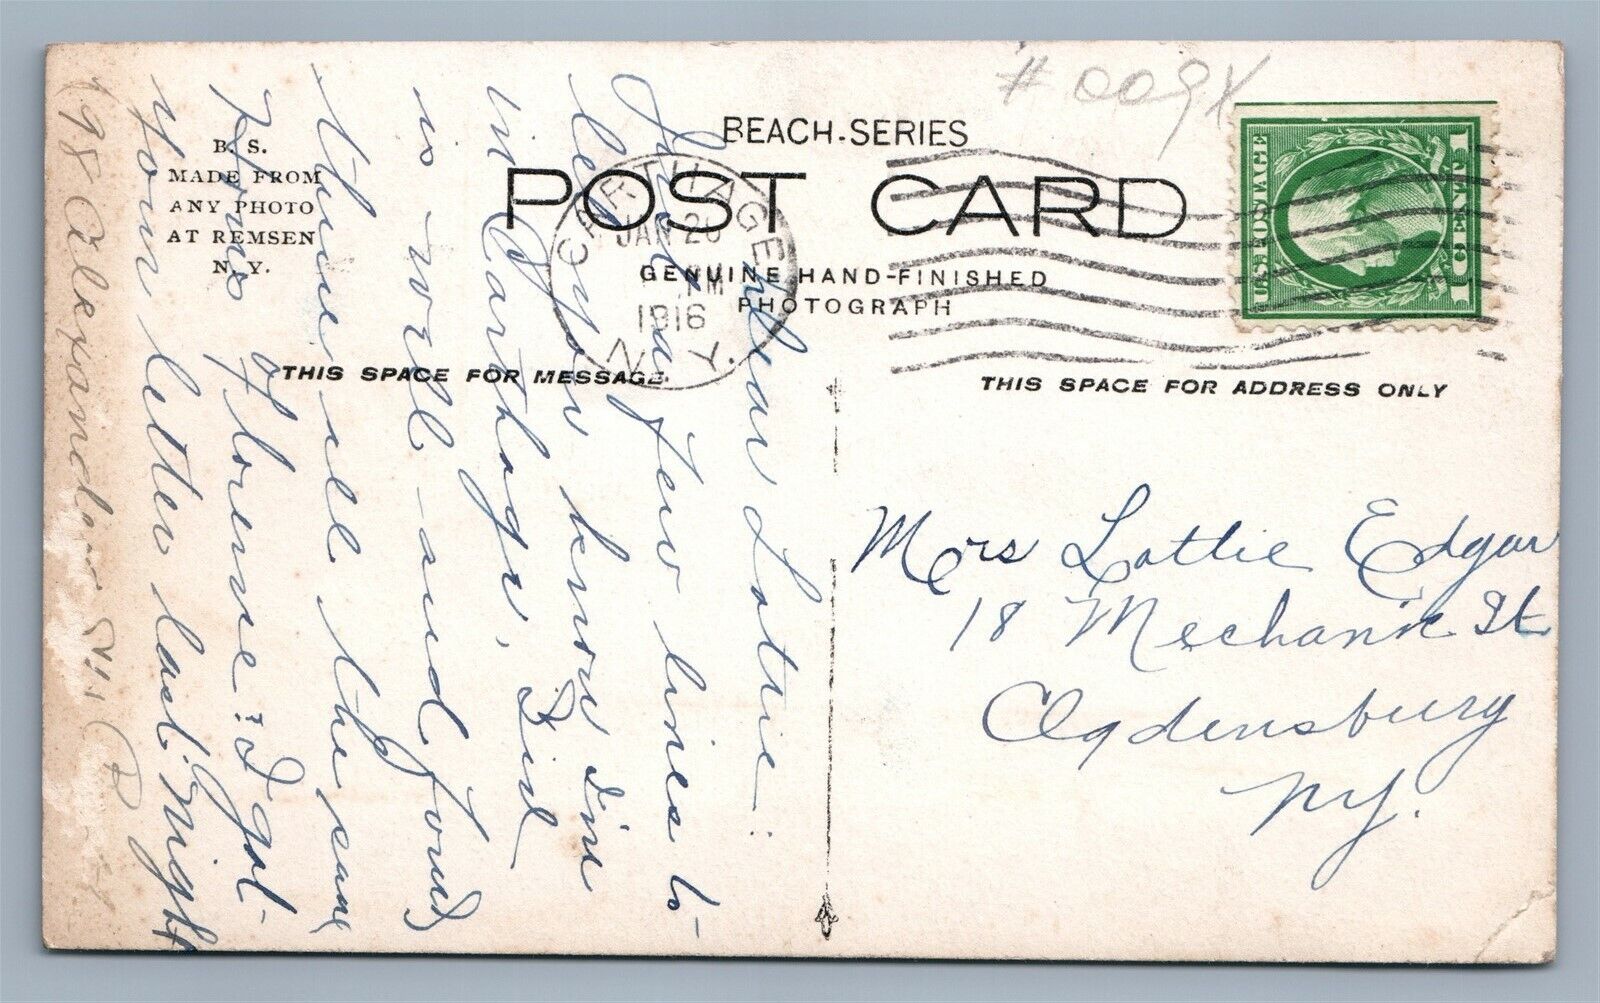 # 009X
BEACH-SERIES
POST CARD
GENUINE HAND-FINISHED
PHOTOGRAPH
B. S.
MADE FROM
ANY PHOTO
AT REMSEN
N. Y.
CARTHAGE
JAN 20
PM
1916
N.Y.
U.S. POSTAGE
1 CENT 1
THIS SPACE FOR MESSAGE
THIS SPACE FOR ADDRESS ONLY
Mrs Lottie Edgar
18 Mechanic St
Ogdensburg
NY.
My dear Lottie:
Just a few lines to
let you know I'm
in Carthage,
is well and found
them all the same
How's Florence? I got
your letter last night
(98 Alexandria